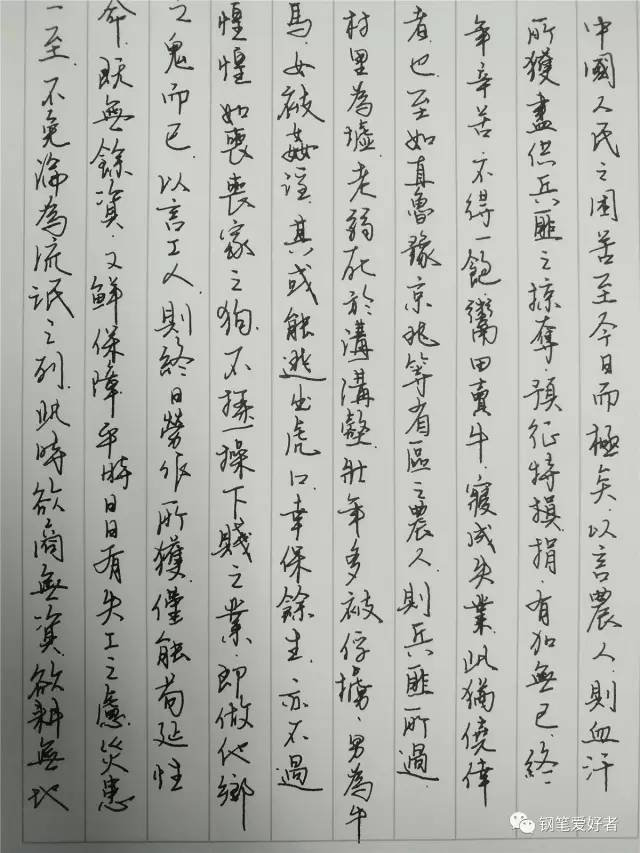 中國人民之困苦至今日而極矣.以言農人.則血汗
所獲盡供兵匪之掠奪.預征特損捐.有加無已.終
年辛苦.不得一飽.鬻田賣牛.寢成失業.此猶僥倖
者也.至如直魯豫京兆等省區之農人.則兵匪所過.
村里為墟.老弱死於溝溝壑.壯年多被俘擄.男為牛
馬.女被姦淫.其或能逃出虎口.幸保餘生.亦不過
惶惶如喪喪家之狗.不操操下賤之業.即做他鄉
之鬼而已.以言工人.則終日勞作所獲.僅能苟延性
命.既無餘資.又鮮保障.平時日日有失工之慮.災患
一至.不免淪為流氓之列.此時欲商無資.欲耕無地
钢笔爱好者